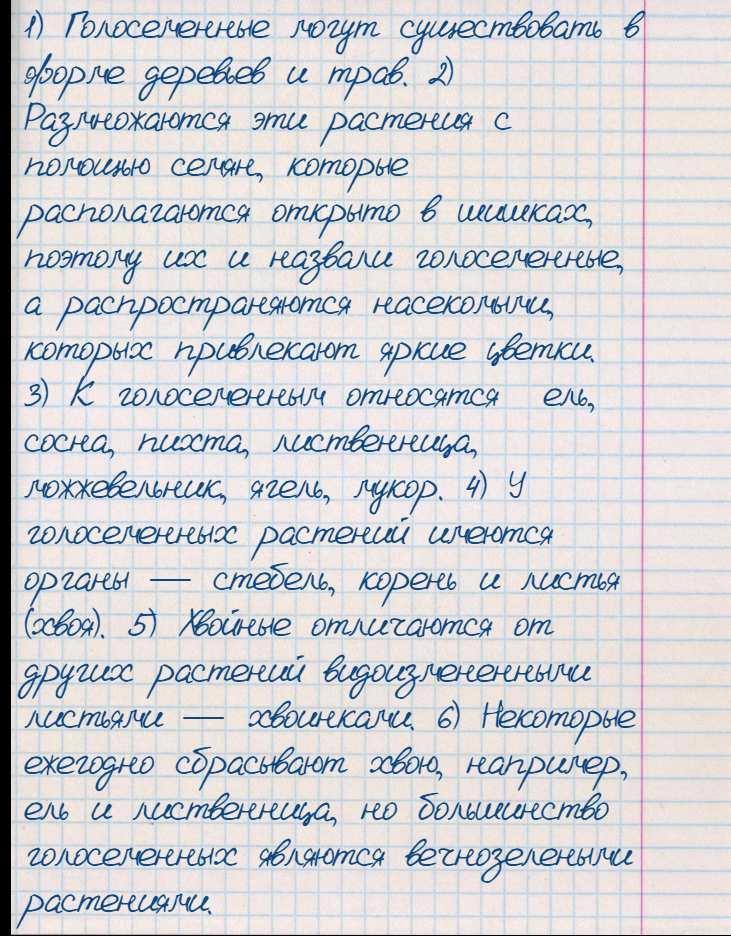 1) Голосеменные могут существовать в
форме деревьев и трав. 2)
Размножаются эти растения с
помощью семян, которые
располагаются открыто в шишках,
поэтому их и назвали голосеменные,
а распространяются насекомыми,
которых привлекают яркие цветки.
3) К голосеменным относятся ель,
сосна, пихта, лиственница,
можжевельник, ягель, мукор. 4) У
голосеменных растений имеются
органы — стебель, корень и листья
(хвоя). 5) Хвойные отличаются от
других растений видоизмененными
листьями — хвоинками. 6) Некоторые
ежегодно сбрасывают хвою, например,
ель и лиственница, но большинство
голосеменных являются вечнозелеными
растениями.